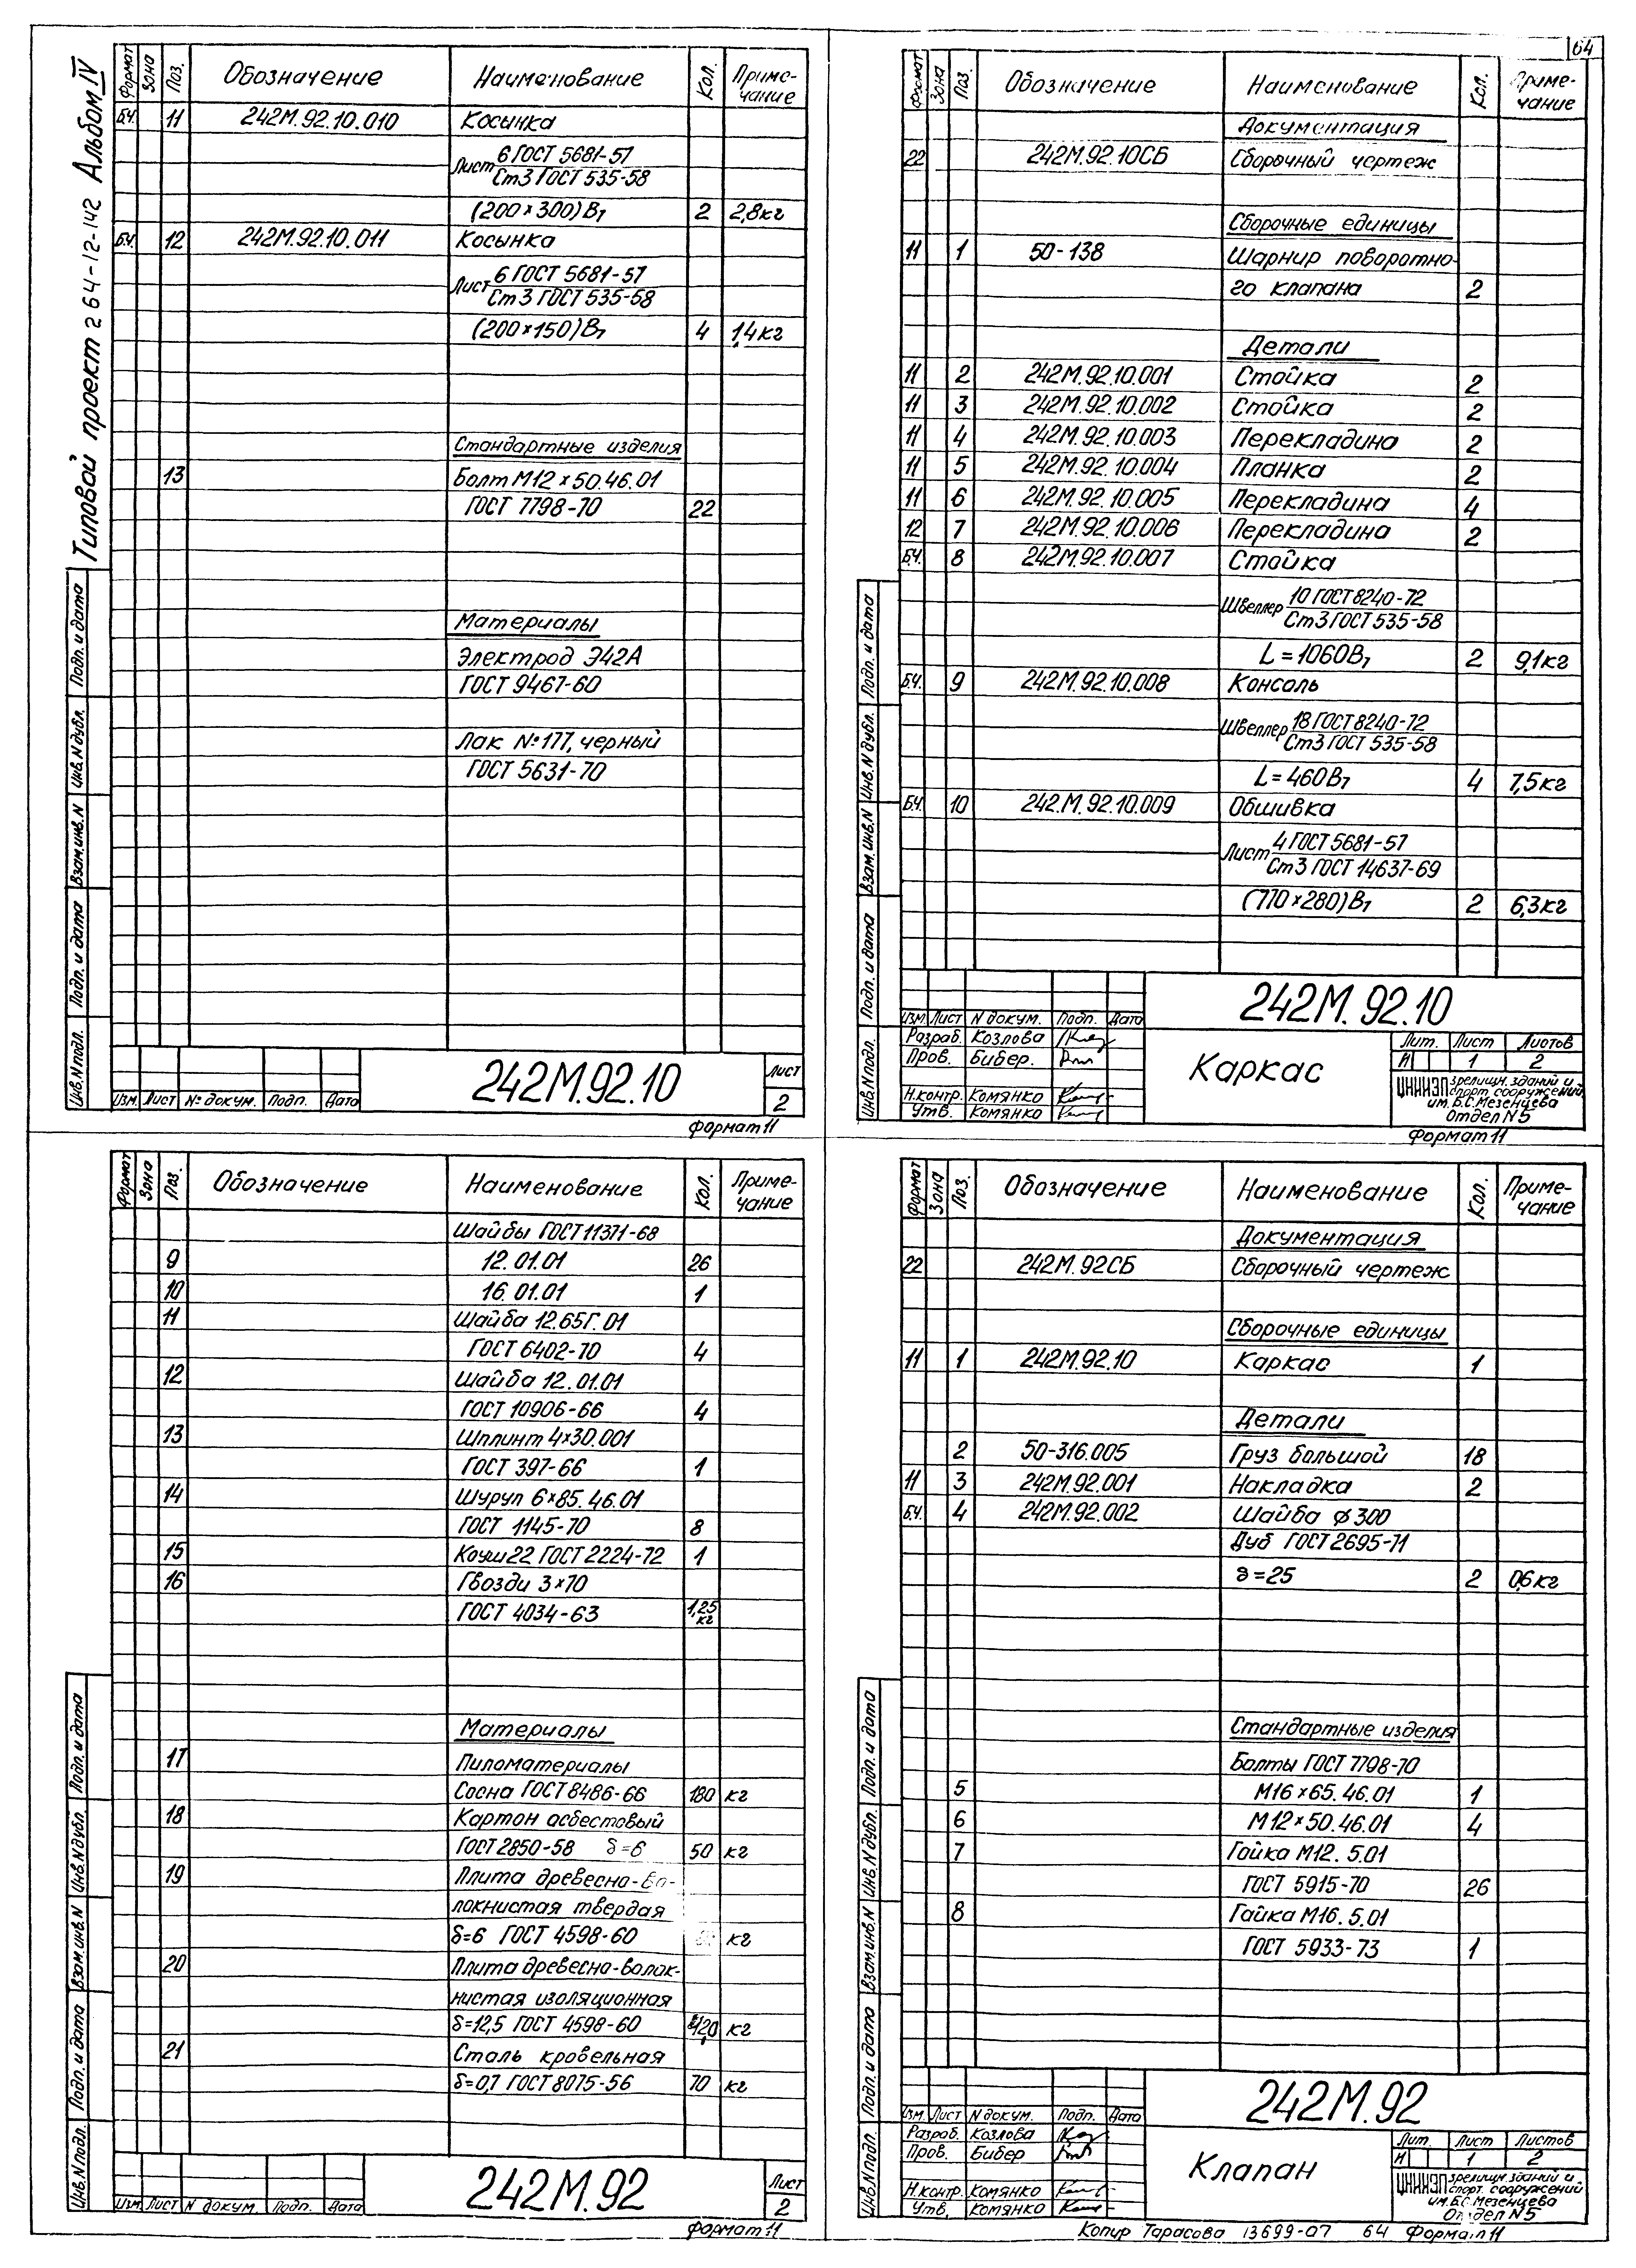 Типовой проект 264-12-142 Альбом IV
64
Формат Зона Поз. Обозначение Наименование Кол. Приме-
чание
Б.Ч. 11 242М.92.10.010 Косынка
Лист 6 ГОСТ 5681-57
Ст3 ГОСТ 535-58
(200×300)В7 2 2,8кг
Б.Ч. 12 242М.92.10.011 Косынка
Лист 6 ГОСТ 5681-57
Ст3 ГОСТ 535-58
(200×150)В7 4 1,4кг
Стандартные изделия
13 Болт М12×50.46.01
ГОСТ 7798-70 22
Материалы
Электрод Э42А
ГОСТ 9467-60
Лак №177, черный
ГОСТ 5631-70
Инв.N подл. Подп. и дата Взам.инв.N Инв.N дубл. Подп. и дата
Изм. Лист № докум. Подп. Дата
242М.92.10
Лист
2
Формат 11
Формат Зона Поз Обозначение Наименование Кол. Приме-
чание
Документация
22 242М.92.10СБ Сборочный чертеж
Сборочные единицы
11 1 50-138 Шарнир поворотно-
го клапана 2
Детали
11 2 242М.92.10.001 Стойка 2
11 3 242М.92.10.002 Стойка 2
11 4 242М.92.10.003 Перекладина 2
11 5 242М.92.10.004 Планка 2
11 6 242М.92.10.005 Перекладина 4
12 7 242М.92.10.006 Перекладина 2
Б.Ч. 8 242М.92.10.007 Стойка
Швеллер 10 ГОСТ 8240-72
Ст3 ГОСТ 535-58
L=1060В7 2 9,1кг
Б.Ч. 9 242М.92.10.008 Консоль
Швеллер 18 ГОСТ 8240-72
Ст3 ГОСТ 535-58
L=460В7 4 7,5кг
Б.Ч. 10 242.М.92.10.009 Обшивка
Лист 4 ГОСТ 5681-57
Ст3 ГОСТ 14637-69
(770×280)В7 2 6,3кг
Инв.N подл. Подп. и дата Взам.инв.N Инв.N дубл. Подп. и дата
242М.92.10
Изм. Лист N докум. Подп. Дата
Разраб. Козлова
Пров. Бибер.
Н.контр. Комянко
Утв. Комянко
Каркас
Лит. Лист Листов
И 1 2
ЦНИИЭП зрелищн. зданий и
спорт. сооружений
им. Б.С. Мезенцева
Отдел N5
Формат 11
Формат Зона Поз. Обозначение Наименование Кол. Приме-
чание
Шайбы ГОСТ 11371-68
9 12.01.01 26
10 16.01.01 1
11 Шайба 12.65Г.01
ГОСТ 6402-70 4
12 Шайба 12.01.01
ГОСТ 10906-66 4
13 Шплинт 4×30.001
ГОСТ 397-66 1
14 Шуруп 6×85.46.01
ГОСТ 1145-70 8
15 Коуш 22 ГОСТ 2224-72 1
16 Гвозди 3×70
ГОСТ 4034-63 1,25
кг
Материалы
17 Пиломатериалы
Сосна ГОСТ 8486-66 180 кг
18 Картон асбестовый
ГОСТ 2850-58 δ=6 50 кг
19 Плита древесно-во-
локнистая твердая
δ=6 ГОСТ 4598-60 кг
20 Плита древесно-волок-
нистая изоляционная
δ=12,5 ГОСТ 4598-60 кг
21 Сталь кровельная
δ=0,7 ГОСТ 8075-56 70 кг
Инв.N подл. Подп. и дата Взам.инв.N Инв.N дубл. Подп. и дата
Изм. Лист N докум. Подп. Дата
242М.92
Лист
2
Формат 11
Формат Зона Поз. Обозначение Наименование Кол. Приме-
чание
Документация
22 242М.92СБ Сборочный чертеж
Сборочные единицы
11 1 242М.92.10 Каркас 1
Детали
2 50-316.005 Груз большой 18
11 3 242М.92.001 Накладка 2
Б.Ч. 4 242М.92.002 Шайба ф300
Дуб ГОСТ 2695-71
δ=25 2 0,6кг
Стандартные изделия
Болты ГОСТ 7798-70
5 М16×65.46.01 1
6 М12×50.46.01 4
7 Гайка М12.5.01
ГОСТ 5915-70 26
8 Гайка М16.5.01
ГОСТ 5933-73 1
Инв.N подл. Подп. и дата Взам.инв.N Инв.N дубл. Подп. и дата
242М.92
Изм. Лист N докум. Подп. Дата
Разраб. Козлова
Пров. Бибер
Н.контр. Комянко
Утв. Комянко
Клапан
Лит. Лист Листов
И 1 2
ЦНИИЭП зрелищн. зданий и
спорт. сооружений
им. Б.С. Мезенцева
Отдел N5
Копир Тарасова 13699-07 64 Формат 11